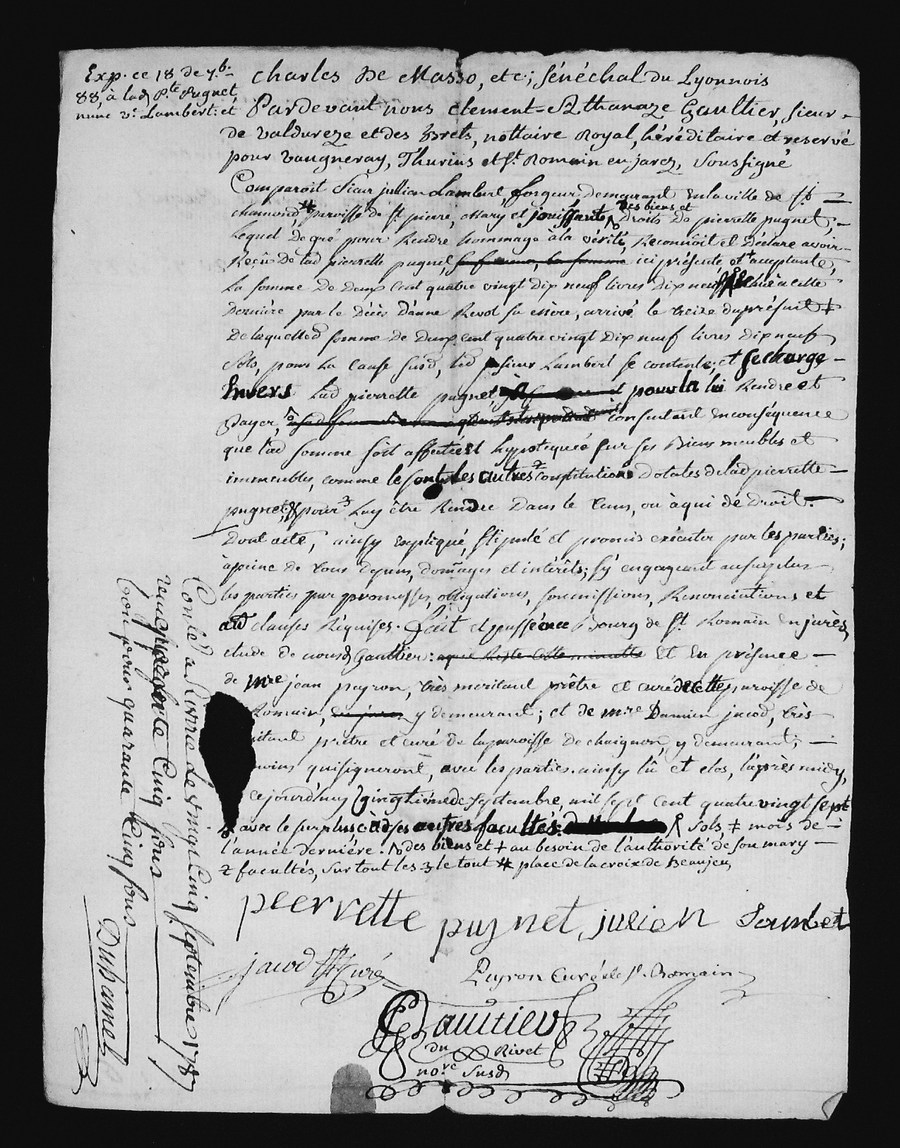 Exp. ce 18 de 7.b.
88, à lad. P.te Pugnet
nunc v.e Lambert. et
Charles De Masso, etc; sénéchal du Lyonnois
Pardevant nous Clement-Athanaze Gaultier, sieur
de Valdureze et des forets, nottaire Royal, héréditaire et reservé
pour Vaugneray, Thurins et St. Romain en jarez, soussigné
Comparoit sieur julien Lambert, forgeur demeurant en la ville de st
chamond ⁜ parroisse de st pierre, mary et jouissant des biens et droits de pierrette pugnet,
lequel de gré pour Rendre hommage à la vérité, Reconnoit et Déclare avoir
Reçu de lad pierrette pugnet, ici présente et acceptante,
La somme de Deux Cent quatre vingt dix neuf livres dix neuf
Derniere par le Décès d'anne Revol sa mère, arrivé le treize du présent ‡
De laquelle somme de Deux cent quatre vingt dix neuf livres dix neuf
sols, pour la cause susd, led sieur Lambert se contente; et se charge
Envers lad pierrette pugnet pour la lui Rendre et
Payer, consentant en conséquence
que lad somme soit affectée et hypotiquée sur ses Biens meubles et
immeubles, comme le sont les autres constitutions Dotales de lad pierrette
pugnet, pour luy être Rendre Dans le tems, ou à qui de Droit.
Dont acte, ainsy expliqué, stipulé et promis exécuter par les parties;
à peine de tous Dépens, dommages et intérêts; s'y engageant au surplus
les parties par promesses, obligations, soumissions, Renonciations et
aud clauses Réquises. fait et passé au Bourg de St. Romain en jarès
étude de nousd Gaultier: et en présence
de m.re jean peyron, très méritant prêtre et curé de cette parroisse de
Romain, y demeurant; et de m.re Damien jacod, très
méritant prêtre et curé de la parroisse de chaignon, y demeurant,
témoins qui signeront, avec les parties. ainsy lû et clos, l'après midy,
cejourd'huy vingtième de septembre, mil sept cent quatre vingt sept
avec le surplus autres facultés sols ‡ mois de
l'année dernière. des biens et ‡ au besoin de l'authorité de son mary
2 facultés, sur tout les 3 le tout ⁜ place de la croix de Beaujeu
peervette pugnet, julien Lambet
jacod Curé
Peyron Curé de St. Romain
Gaultier
du Rivet
no.re Susd
Con.lé a Rivrie le vingt Cinq septembre 1787
reçu quarante Cinq sous
Bon pour quarante Cinq sous
Duhamel